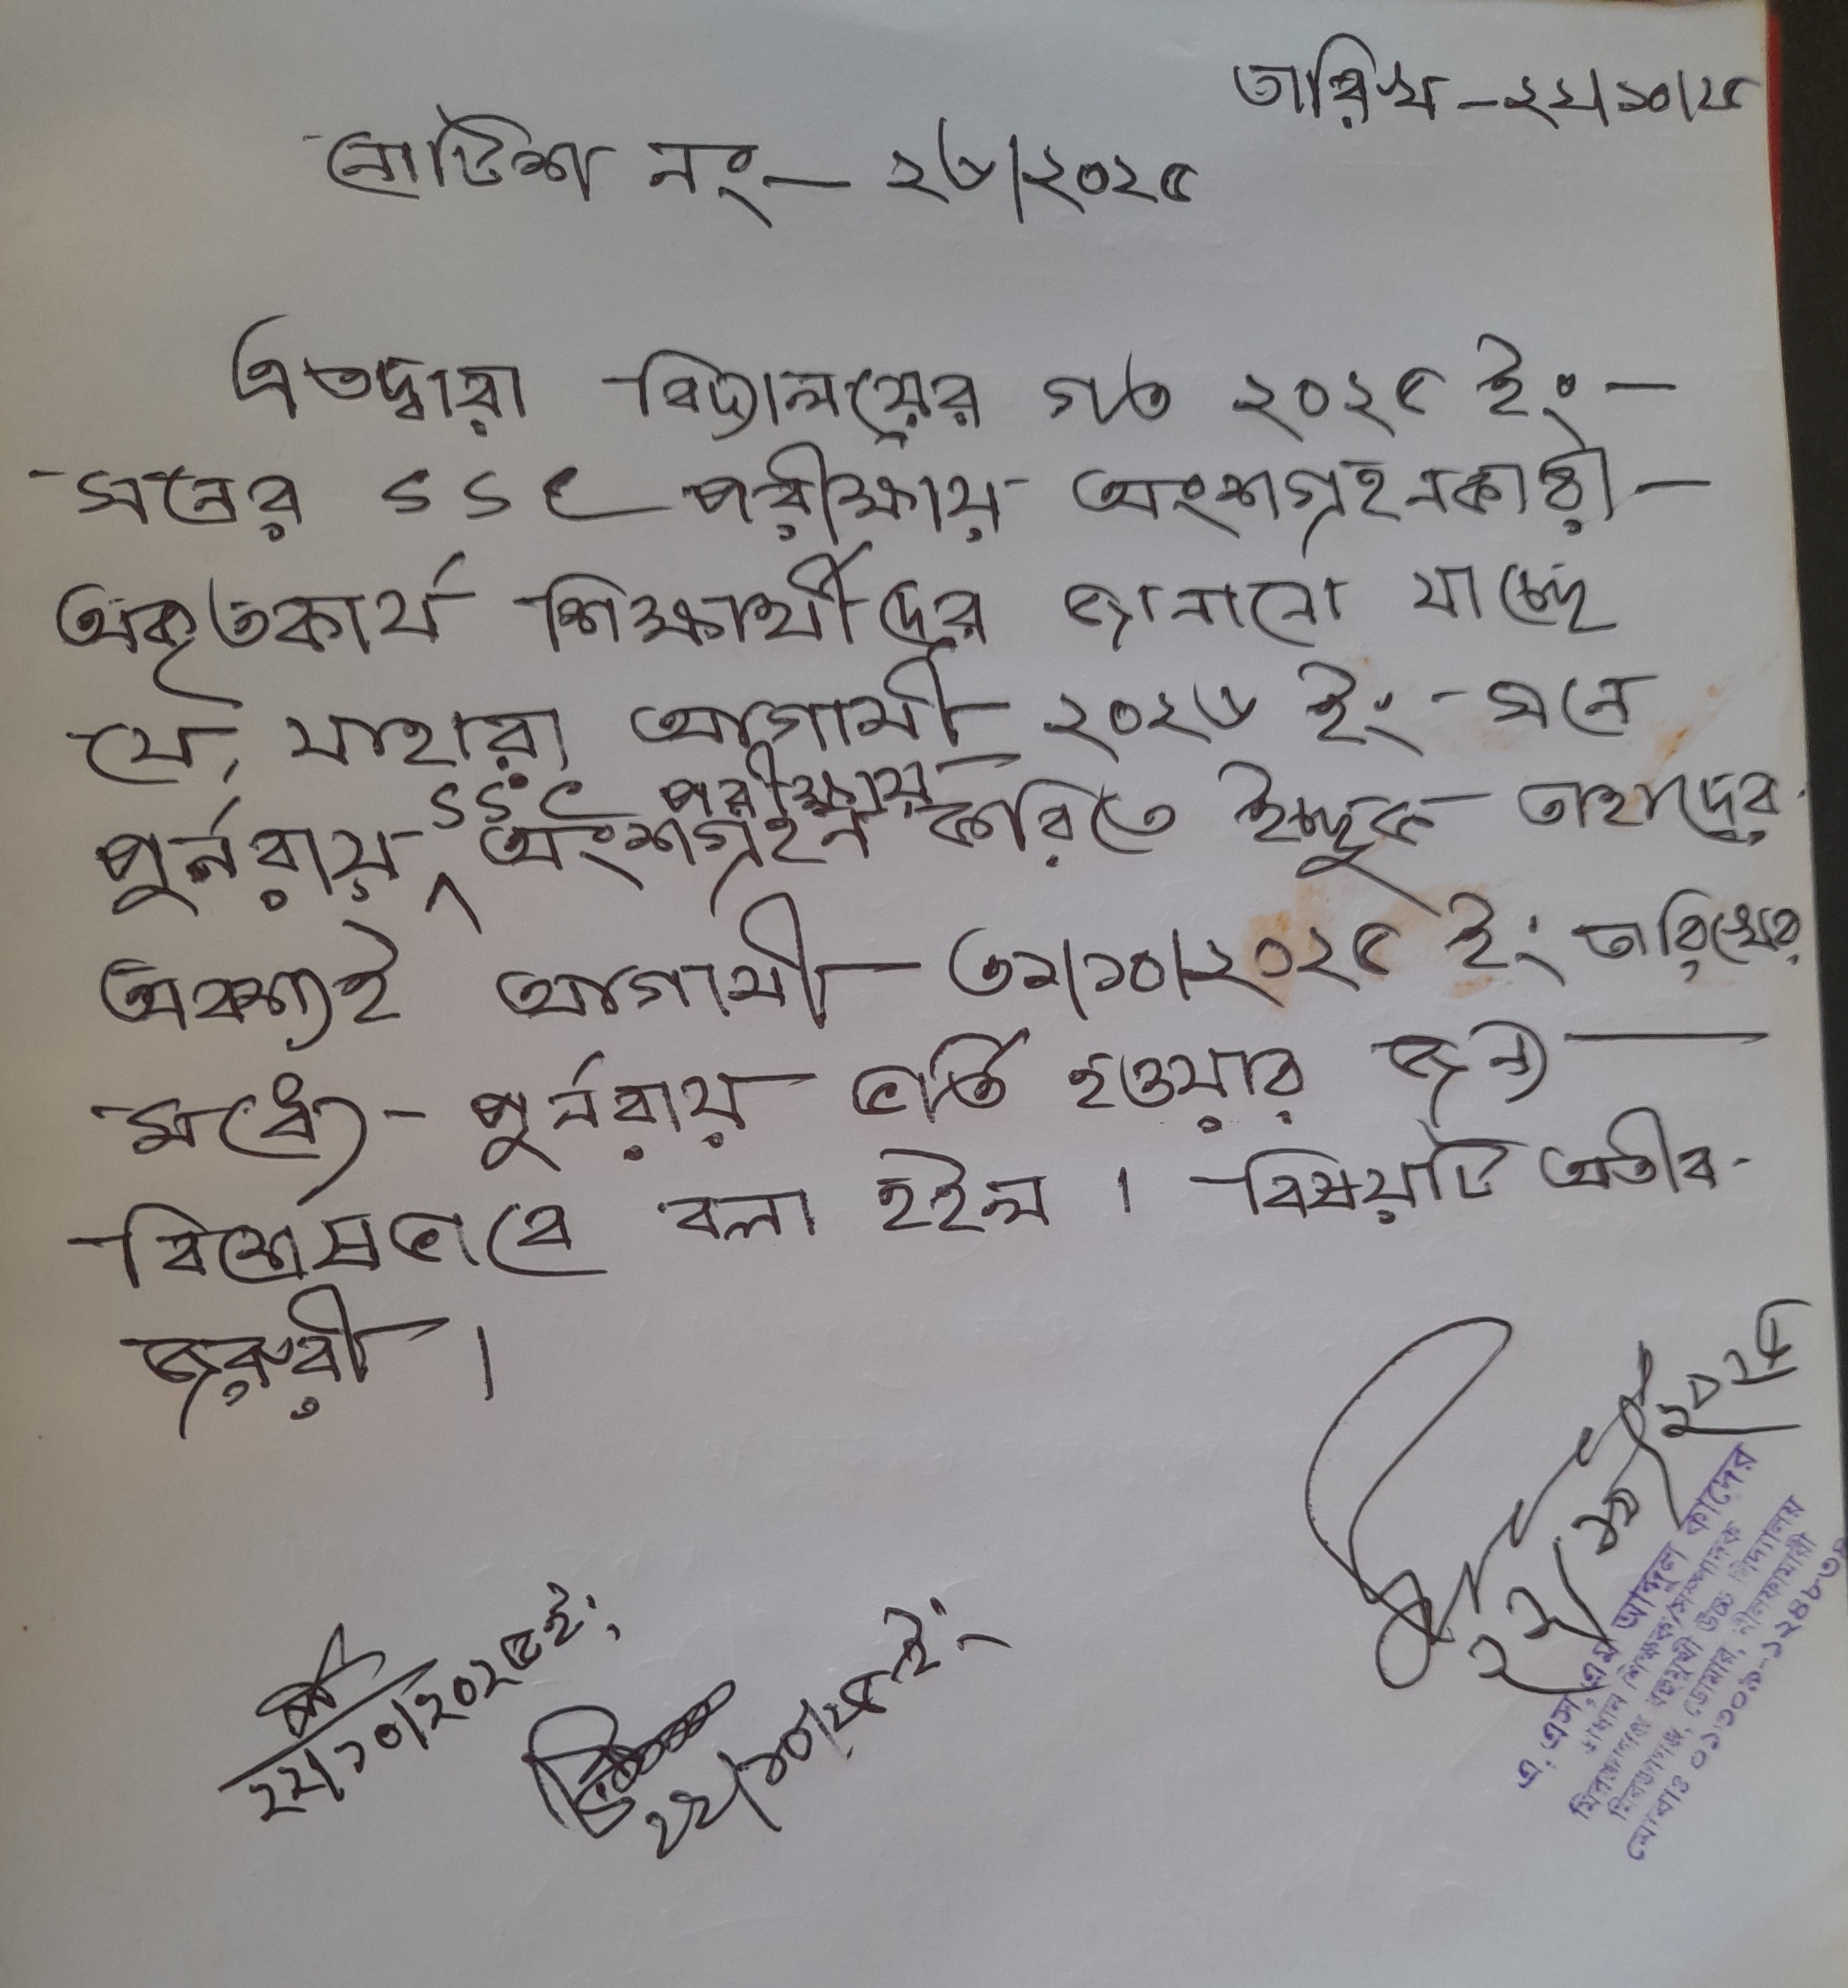 তারিখ - ২২/১০/২৫
নোটিশ নং- ২৬/২০২৫
এতদ্বারা বিদ্যালয়ের গত ২০২৫ ইং-
সনের SSC পরীক্ষায় অংশগ্রহনকারী-
অকৃতকার্য শিক্ষার্থীদের জানানো যাচ্ছে
যে, যাহারা আগামী ২০২৬ ইং- সনে
SSC পরীক্ষায়
পুর্নরায় ^ অংশগ্রহন করিতে ইচ্ছুক তাহাদের
অবশ্যই আগামী- ৩১/১০/২০২৫ ইং তারিখের
মধ্যে- পুর্নরায় ভর্তি হওয়ার জন্য
বিশেষভাবে বলা হইল । বিষয়টি অতীব-
জরুরী ।
২০২৫
এ, এস, এম আব্দুল কাদের
প্রধান শিক্ষক/সম্পাদক
মিরজাগঞ্জ বহুমুখী উচ্চ বিদ্যালয়
মিরজাগঞ্জ, ডোমার, নীলফামারী
২২/১০/২০২৫ইং
২২/১০/২৫ ইং-